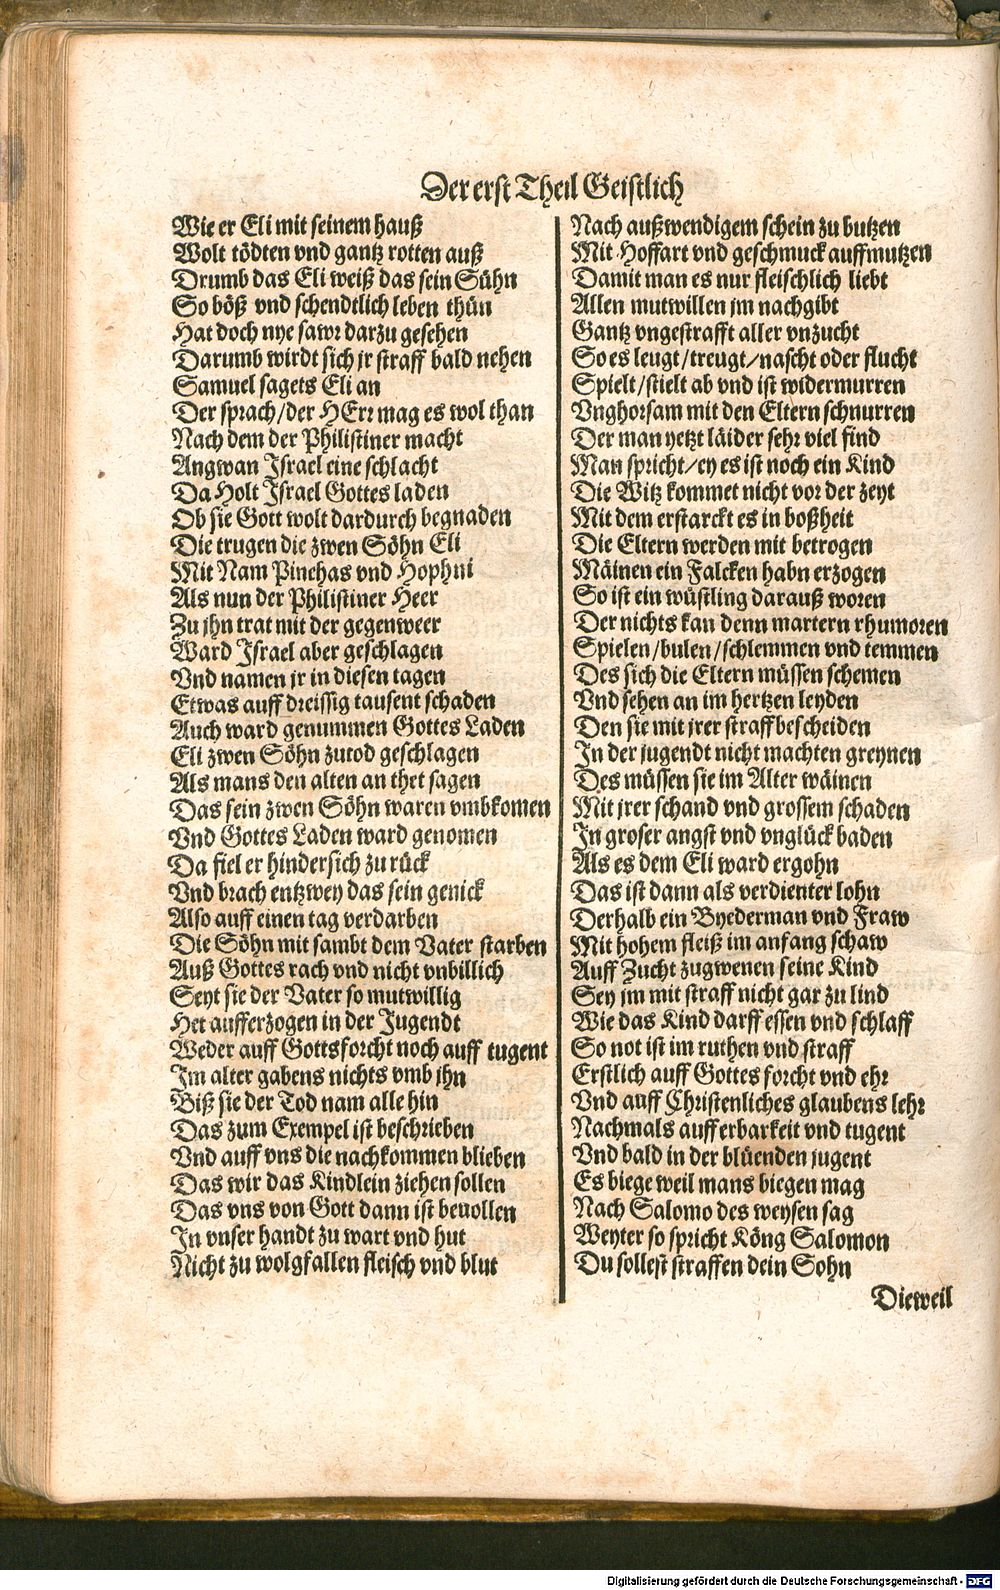 Der erst Theil Geistlich
Wie er Eli mit seinem hauß
Wolt tödten vnd gantz rotten auß
Drumb das Eli weiß das sein Sühn
So böß vnd schendtlich leben thün
Hat doch nye sawr darzu gesehen
Darumb wirdt sich jr straff bald nehen
Samuel sagets Eli an
Der sprach/der HErr mag es wol than
Nach dem der Philistiner macht
Angwan Israel eine schlacht
Da Holt Israel Gottes laden
Ob sie Gott wolt dardurch begnaden
Die trugen die zwen Söhn Eli
Mit Nam Pinchas vnd Hophni
Als nun der Philistiner Heer
Zu jhn trat mit der gegenweer
Ward Israel aber geschlagen
Vnd namen jr in diesen tagen
Etwas auff dreissig tausent schaden
Auch ward genummen Gottes Laden
Eli zwen Söhn zutod geschlagen
Als mans den alten an thet sagen
Das sein zwen Söhn waren vmbkomen
Vnd Gottes Laden ward genomen
Da fiel er hindersich zu rück
Vnd brach entzwey das sein genick
Also auff einen tag verdarben
Die Söhn mit sambt dem Vater starben
Auß Gottes rach vnd nicht vnbillich
Seyt sie der Vater so mutwillig
Het aufferzogen in der Jugendt
Weder auff Gottsforcht noch auff tugent
Im alter gabens nichts vmb jhn
Biß sie der Tod nam alle hin
Das zum Exempel ist beschrieben
Vnd auff vns die nachkommen blieben
Das wir das Kindlein ziehen sollen
Das vns von Gott dann ist beuollen
In vnser handt zu wart vnd hut
Nicht zu wolgfallen fleisch vnd blut
Nach außwendigem schein zu butzen
Mit Hoffart vnd geschmuck auffmutzen
Damit man es nur fleischlich liebt
Allen mutwillen jm nachgibt
Gantz vngestrafft aller vnzucht
So es leugt/treugt/nascht oder flucht
Spielt/stielt ab vnd ist widermurren
Vnghorsam mit den Eltern schnurren
Der man yetzt läider sehr viel find
Man spricht/ey es ist noch ein Kind
Die Witz kommet nicht vor der zeyt
Mit dem erstarckt es in boßheit
Die Eltern werden mit betrogen
Mäinen ein Falcken habn erzogen
So ist ein wüstling darauß woren
Der nichts kan denn martern rhumoren
Spielen/bulen/schlemmen vnd temmen
Des sich die Eltern müssen schemen
Vnd sehen an im hertzen leyden
Den sie mit jrer straff bescheiden
In der jugendt nicht machten greynen
Des müssen sie im Alter wäinen
Mit jrer schand vnd grossem schaden
In groser angst vnd vnglück baden
Als es dem Eli ward ergohn
Das ist dann als verdienter lohn
Derhalb ein Byederman vnd Fraw
Mit hohem fleiß im anfang schaw
Auff Zucht zugwenen seine Kind
Sey jm mit straff nicht gar zu lind
Wie das Kind darff essen vnd schlaff
So not ist im ruthen vnd straff
Erstlich auff Gottes forcht vnd ehr
Vnd auff Christenliches glaubens lehr
Nachmals auff erbarkeit vnd tugent
Vnd bald in der blüenden jugent
Es biege weil mans biegen mag
Nach Salomo des weysen sag
Weyter so spricht Köng Salomon
Du sollest straffen dein Sohn
Dieweil
Digitalisierung gefördert durch die Deutsche Forschungsgemeinschaft - DFG